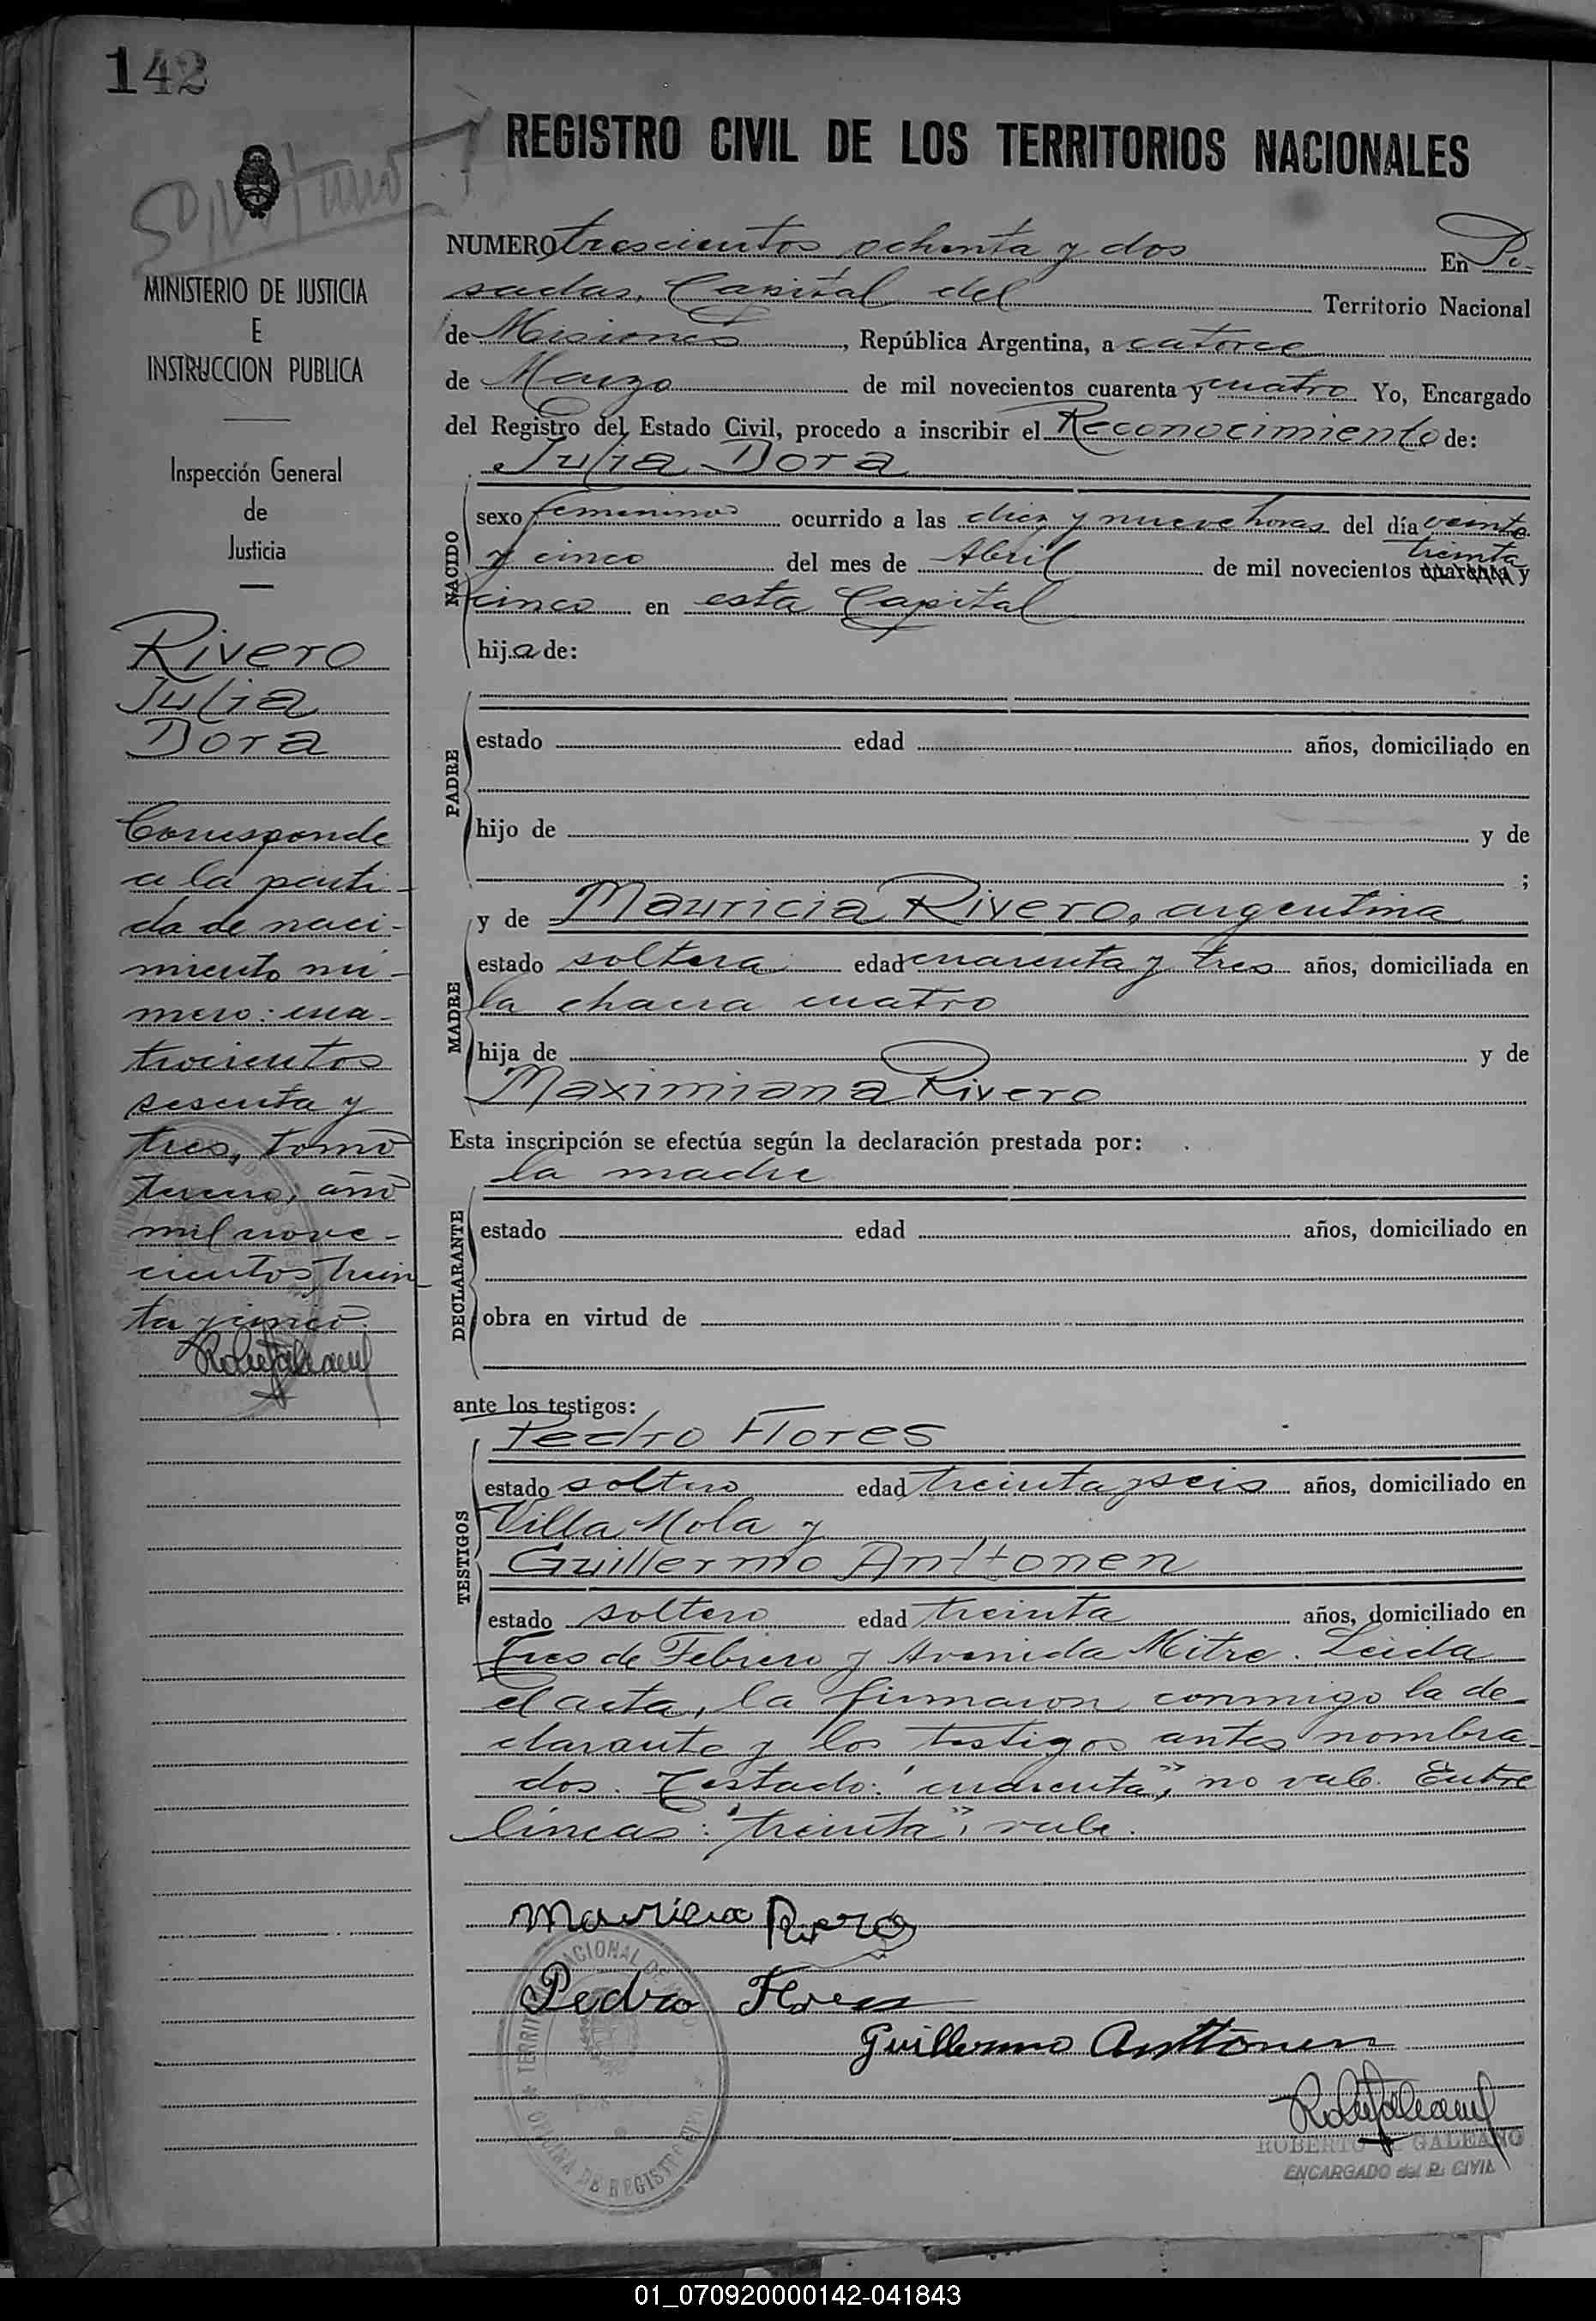 142
REGISTRO CIVIL DE LOS TERRITORIOS NACIONALES
MINISTERIO DE JUSTICIA
E
INSTRUCCION PUBLICA
Inspección General
de
Justicia
Rivero
Julia
Dora
Corresponde
a la parti-
da de naci-
miento nú-
mero: cua-
trocientos
sesenta y
tres, tomo
tercero, año
mil nove-
cientos trein
ta y cinco.
NUMERO trescientos ochenta y dos En Po-
sadas, Capital del Territorio Nacional
de Misiones, República Argentina, a catorce
de Marzo de mil novecientos cuarenta y cuatro Yo, Encargado
del Registro del Estado Civil, procedo a inscribir el Reconocimiento de:
Julia Dora
NACIDO
sexo femenino ocurrido a las diez y nueve horas del día veinte
treinta
y cinco del mes de Abril de mil novecientos cuarenta y
cinco en esta Capital
hija de:
PADRE
estado edad años, domiciliado en
hijo de y de
;
y de Mauricia Rivero, argentina
MADRE
estado soltera edad cuarenta y tres años, domiciliada en
la chacra cuatro
hija de y de
Maximiana Rivero
Esta inscripción se efectúa según la declaración prestada por:
la madre
DECLARANTE
estado edad años, domiciliado en
obra en virtud de
ante los testigos:
Pedro Flores
TESTIGOS
estado soltero edad treinta y seis años, domiciliado en
Villa Mola y
Guillermo Anttonen
estado soltero edad treinta años, domiciliado en
Tres de Febrero y Avenida Mitre. Leida
el acta, la firmaron conmigo la de-
clarante y los testigos antes nombra-
dos. Testado: "cuarenta", no vale. Entre
líneas: "treinta", vale.
Mauricia Rivero
Pedro Flores
Guillermo Anttonen
TERRITORIO NACIONAL DE
OFICINA DE REGISTRO CIVIL
ROBERTO GALEANO
ENCARGADO del R. CIVIL
01_070920000142-041843